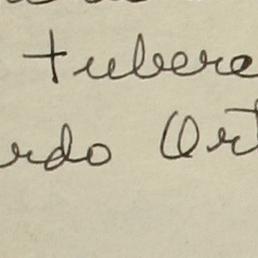 tubere
rdo Ort